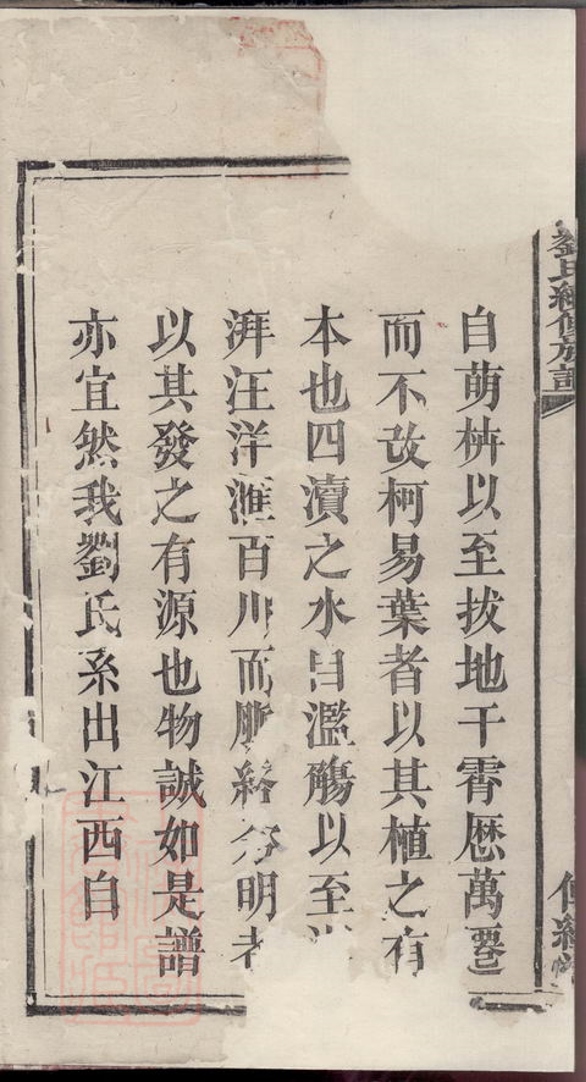 劉氏續修族譜
自萌枿以至拔地干霄歷萬遷
而不改柯易葉者以其植之有
本也四瀆之水自濫觴以至
湃汪洋滙百川而脈絡分明者
以其發之有源也物誠如是譜
亦宜然我劉氏系出江西自